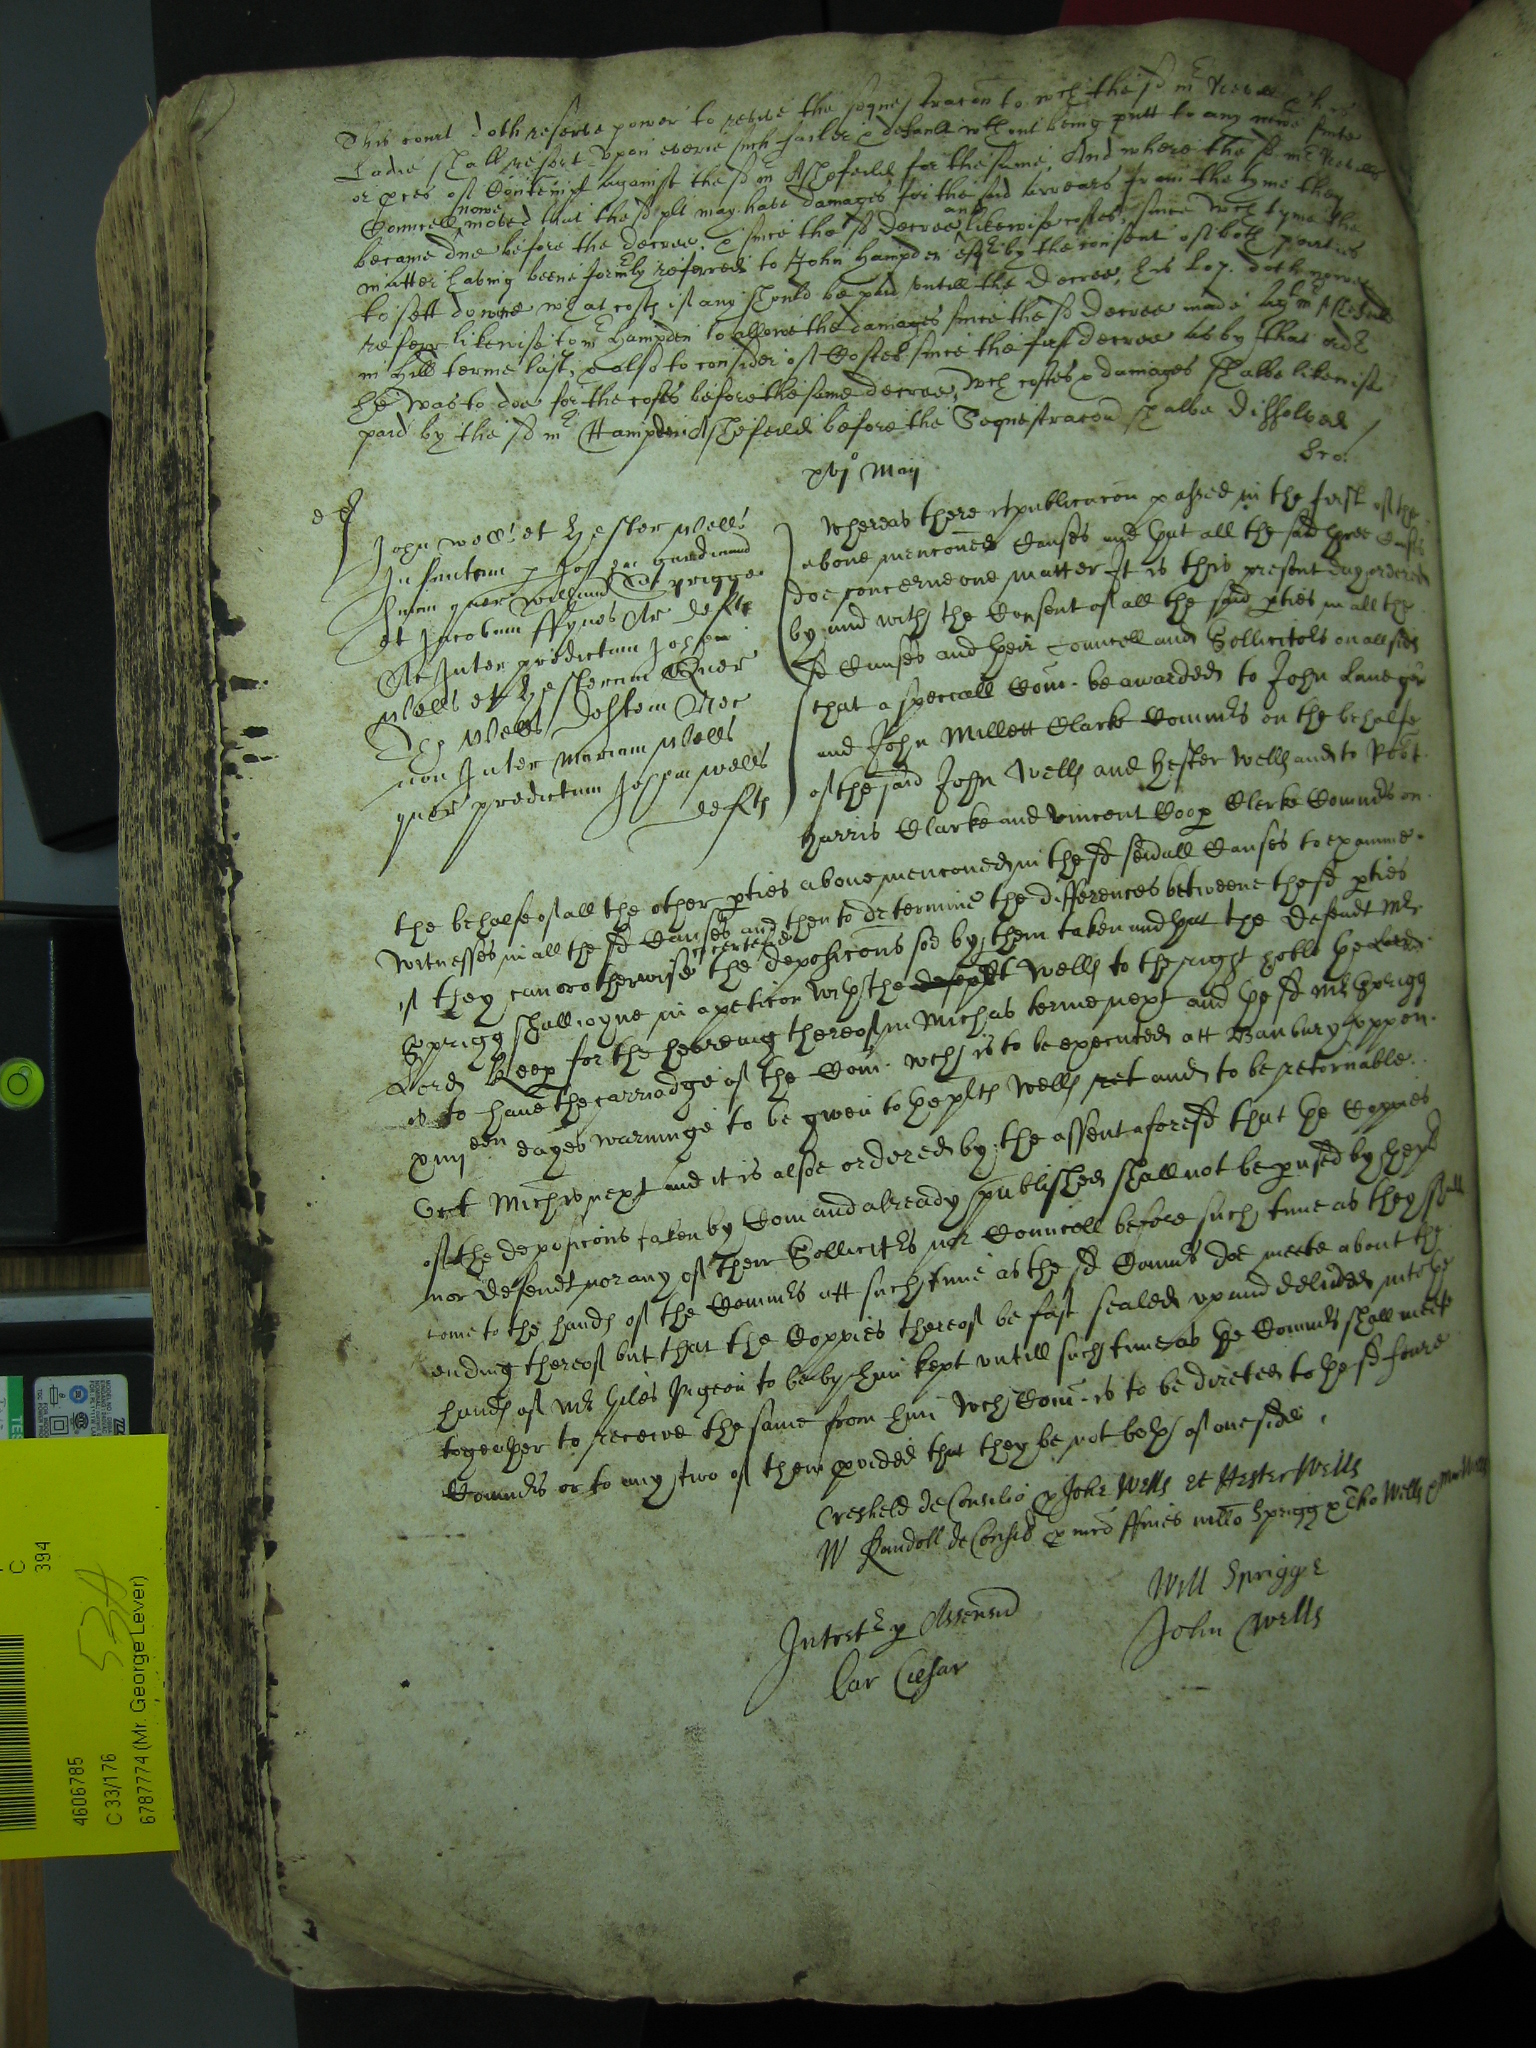 This court doth reserve power to revive the sequestracon to wch the sd mr Nevill
Ladie shall resort upon everie such failer & default wthout being putt to any newe suite
or pces of Contempt against the sd mr Ashefeild for the same, And where the sd mr Nevills
Councell nowe moved that the sd plt may have damages for the said arrears from the tyme they
became due before the decree, & since the sd decree and likewise costes, since wch tyme the
matter having beene formly referred to John Hampden esqr by the consent of both parties
to sett downe what costs if any should be paid untill the decree, his lop. doth nowe
referr likewise to mr Hampden to allowe the damages since the sd decree made
in Hill terme last, & also to consider of Costes since the first decree as by that ordr
he was to doe for the costs before the same decree, wch costes & damages shalbe likewise
paid by the sd mr Ashefeild before the Sequestracon shalbe dissolved
xvjo Maij
John Wells et Hester Wells
Infantem p
quer William Sprigge
et Jacobum ffynes Ar defts
Ac Inter predictum Johem
Wells et Hesterem Quer
Tho Wells deftem Nec
non Inter Mariam Wells
quer predictum Johem Wells
deftes
Whereas there is publicacon passed in the first of the
above menconed Causes and that all the said three Causes
doe concerne one matter It is this present day ordered
by and with the Consent of all the said pties in all the
sd Causes and their Councell and Sollicitors on all sides
that a speciall Com. be awarded to John Lane gen
and John Millett Clarke Commrs on the behalfe
of the said John Wells and Hester Wells and to Robt
Harris Clarke and Vincent Coop Clerke Commrs on
the behalfe of all the other pties above menconed in the sd sevrall Causes to examine
Witnesses in all the sd Causes and then to determine the differences betweene the sd pties
if they can or otherwise to certefie the deposicons soe by them taken and that the Defendt Mr
Sprigg shall ioyne in a peticon with the Wells to the right hoble the
Lord Keep for the heareing thereof in Michas terme next and the sd Mr Sprigg
is to have the carriadge of the Com. wch is to be executed att Banbury uppon
xiiijeen dayes warninge to be given to the plts Wells and to be retornable
Oct Michis next and it is alsoe ordered by the assent aforesd that the Coppies
of the deposicons taken by Com and already published shall not be pused by the plt
nor Defendt nor any of their Sollicitrs nor Councell before such time as they shall
come to the hands of the Commrs att such time as the sd Commrs doe meete about the
ending thereof but that the Coppies thereof be fast sealed up and delived into the
hands of Mr Giles Pigeon to be by him kept untill such time as the Commrs shall meete
togeather to receive the same from him wch Com. is to be directed to the sd foure
Commrs or to any two of them pvided that they be not both of one side
Cresheld de Consilio p John Wells et Hester Wells
W Randoll de Consil p mro ffines Willo Sprigg p Tho Wells & Mar Wells
Intretr p Assensu
Car Cæsar
Will Sprigge
John Wells
C
394
53A
4606785
C 33/176
6787774 (Mr. George Lever)